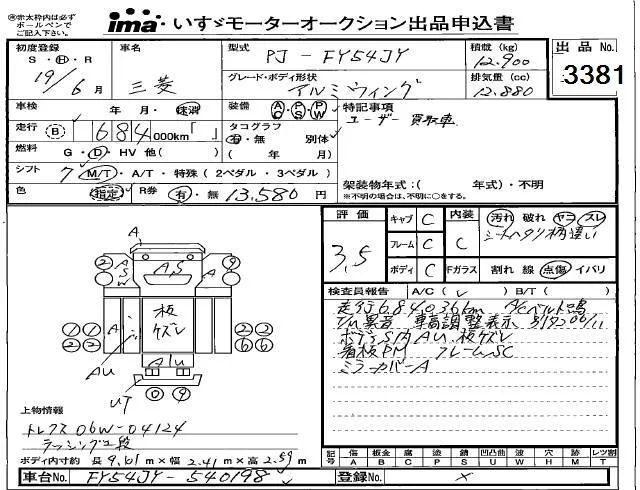 ㊟赤太枠内は必ず ボールペンで ご記入下さい。
ima・いすゞモーターオークション出品申込書
初度登録 S・H・R 19/6月
車名 三菱
型式 PJ-FY54JY
積載(kg) 12.900
出品No. 3381
グレード・ボディ形状 アルミウィング
排気量(cc) 12.880
車検 年 月・抹消
装備 AC・PS・PW
特記事項
ユーザー買取車
走行 B 684,000km「 」
タコグラフ 有・無 別体
( 年 月)
燃料 G・D・HV 他( )
シフト 7 M/T・A/T・特殊(2ペダル・3ペダル)
架装物年式:( 年式)・不明
※不明の場合は、不明に○をする。
色 指定 R券 有・無 13.580円
評価 3.5
キャブ C
フレーム C
ボディ C
内装 C
汚れ 破れ ヤコ スレ
シートヘタリ柄違い
Fガラス 割れ 線 点傷 イバリ
検査員報告 A/C( レ ) B/T( )
走行684,036km A/Cベルト鳴
T/M異音 車高調整表示
ボディSMAU 板ケズレ
看板PM フレームSC
ミラーカバーA
A
2 9
A S W
A,S
A
2 0
板 ケズレ
A
1 1 2 2
1 1 6 6
AU
A1u
UT
0 9
上物情報
トレクス 06W-04124
ラッシング2段
ボディ内寸約 長9.61m×幅2.41m×高2.59m
記号 傷A 板金B 腐C 塗P 錆S 凹凸曲U 波W 穴H 跡M レツ割T
車台No. FY54JY-540198
登録No. ×